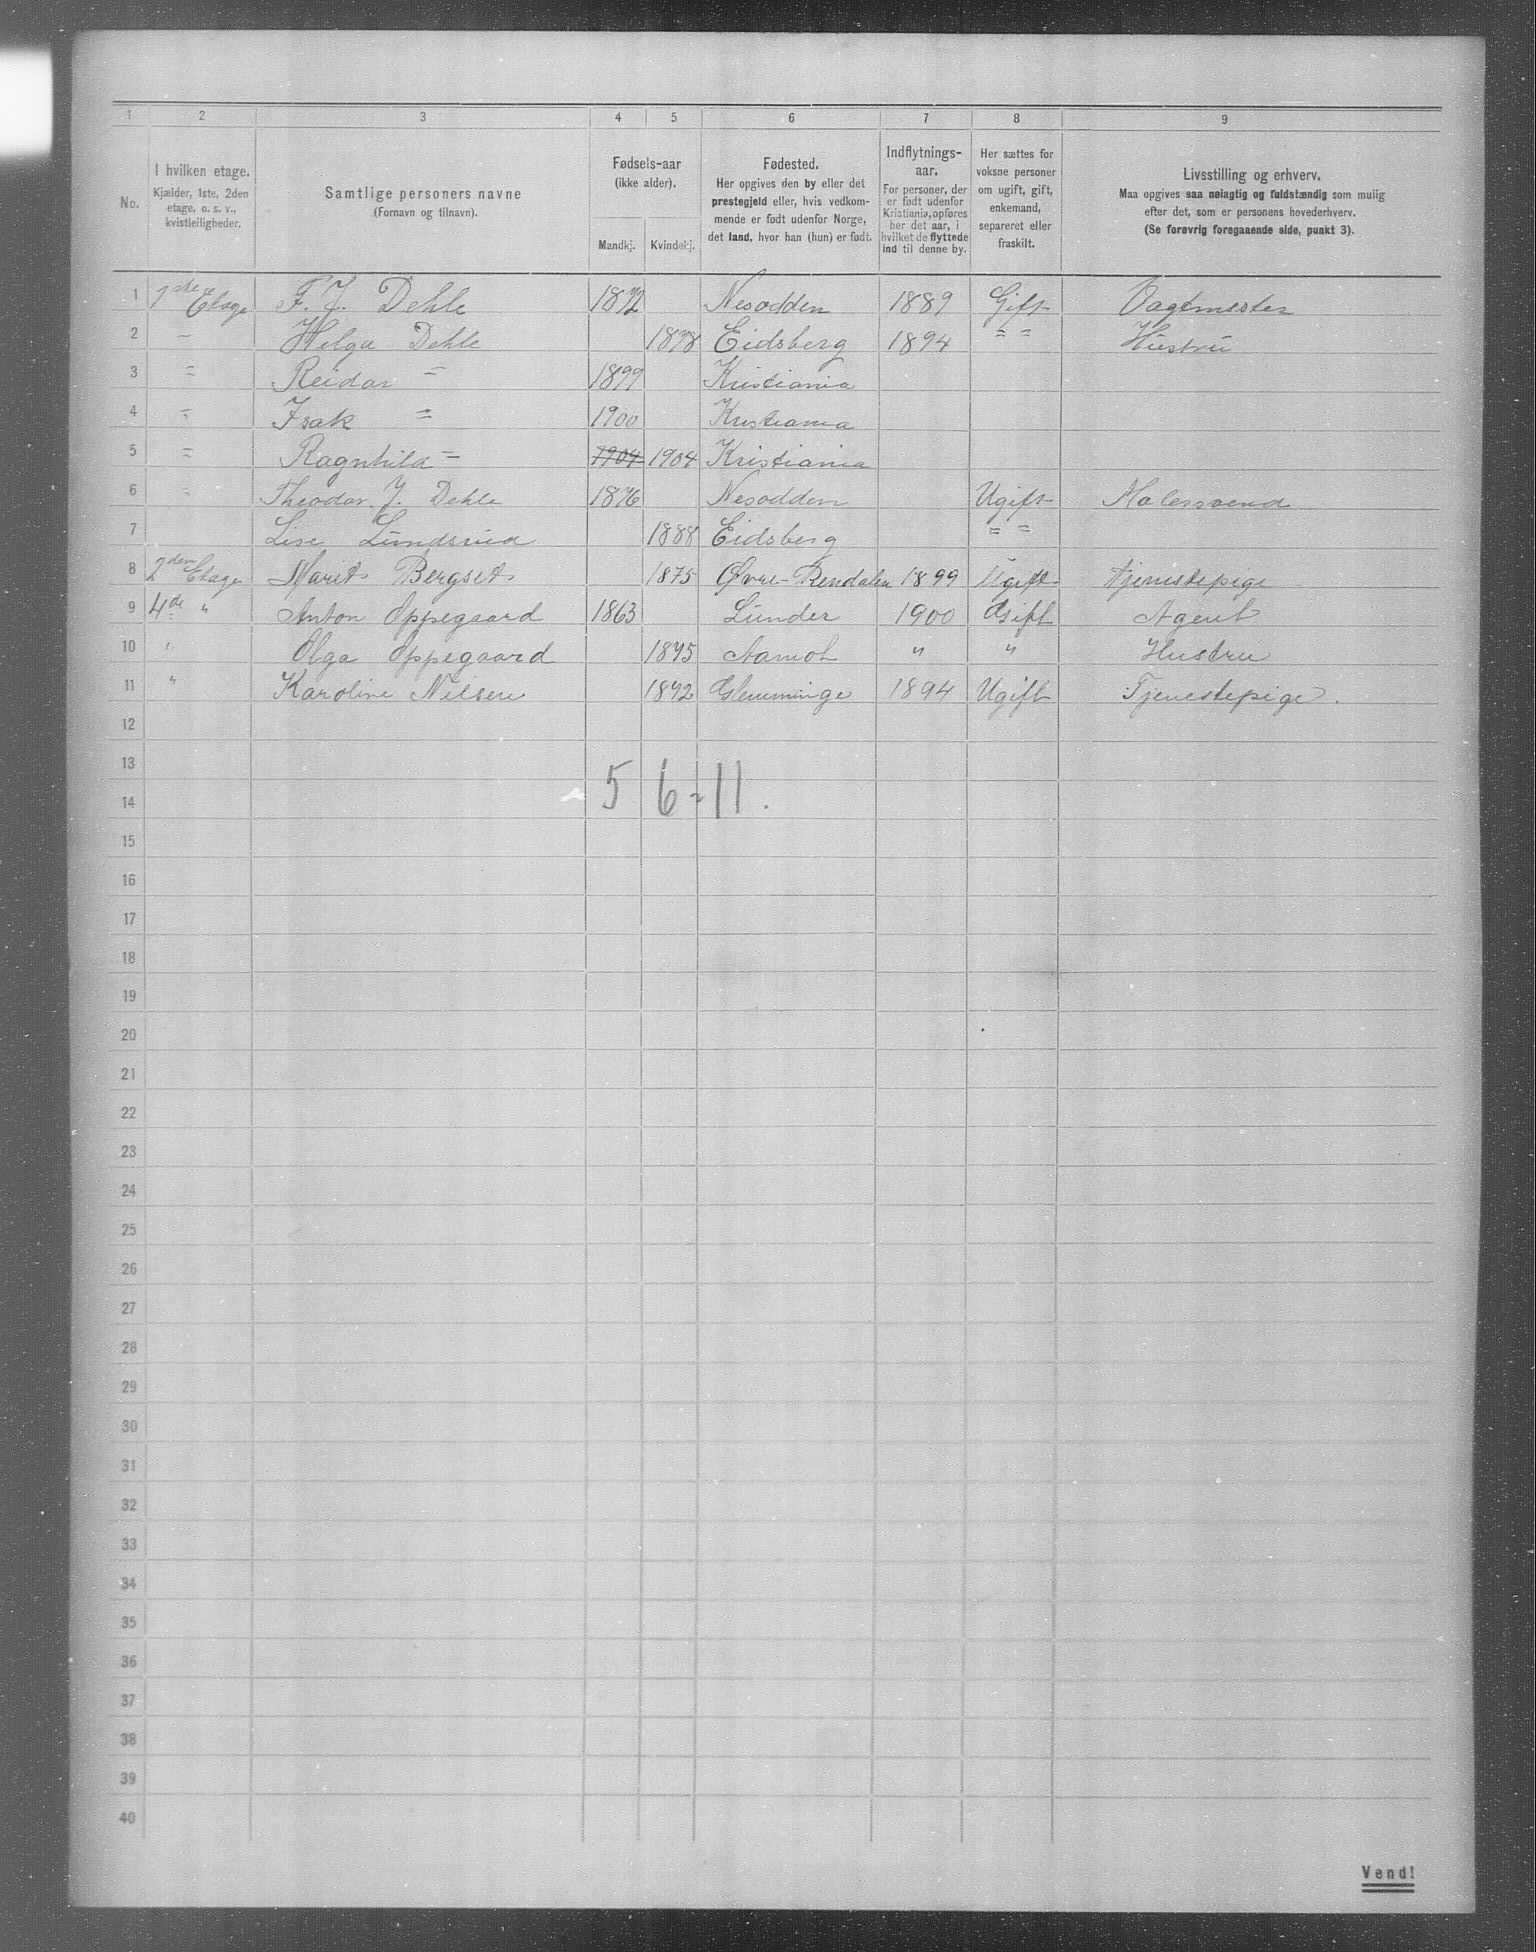 1 2 3 4 5 6 7 8 9
No. I hvilken etage. Kjælder, 1ste, 2den etage, o. s. v., kvistleiligheder. Samtlige personers navne (Fornavn og tilnavn). Fødsels-aar (ikke alder). Mandkj. Kvindekj. Fødested. Her opgives den by eller det prestegjeld eller, hvis vedkommende er født udenfor Norge, det land, hvor han (hun) er født. Indflytnings-aar. For personer, der er født udenfor Kristiania, opføres her det aar, i hvilket de flyttede ind til denne by. Her sættes for voksne personer om ugift, gift, enkemand, separeret eller fraskilt. Livsstilling og erhverv. Maa opgives saa nøiagtig og fuldstændig som mulig efter det, som er personens hovederhverv. (Se forøvrig foregaaende side, punkt 3).
1 1ste Etage F. J. Dehle 1872 Nesodden 1889 Gift Vagtmester
2 — Helga Dehle 1878 Eidsberg 1894 = = Hustru
3 = Reidar = 1899 Kristiania
4 = Isak = 1900 Kristiania
5 = Ragnhild = 1904 1904 Kristiania
6 = Theodor J. Dehle 1876 Nesodden Ugift Malersvend
7 Lise Lundsrud 1888 Eidsberg = =
8 2den Etage Marit Bergset 1875 Øvre-Rendalen 1899 Ugift Tjenestepige
9 4de " Anton Oppegaard 1863 Lunder 1900 Gift Agent
10 " Olga Oppegaard 1875 Aamot " " Hustru
11 " Karoline Nilsen 1872 Glemminge 1894 Ugift Tjenestepige.
12
13
5 6 = 11.
14
15
16
17
18
19
20
21
22
23
24
25
26
27
28
29
30
31
32
33
34
35
36
37
38
39
40
Vend!